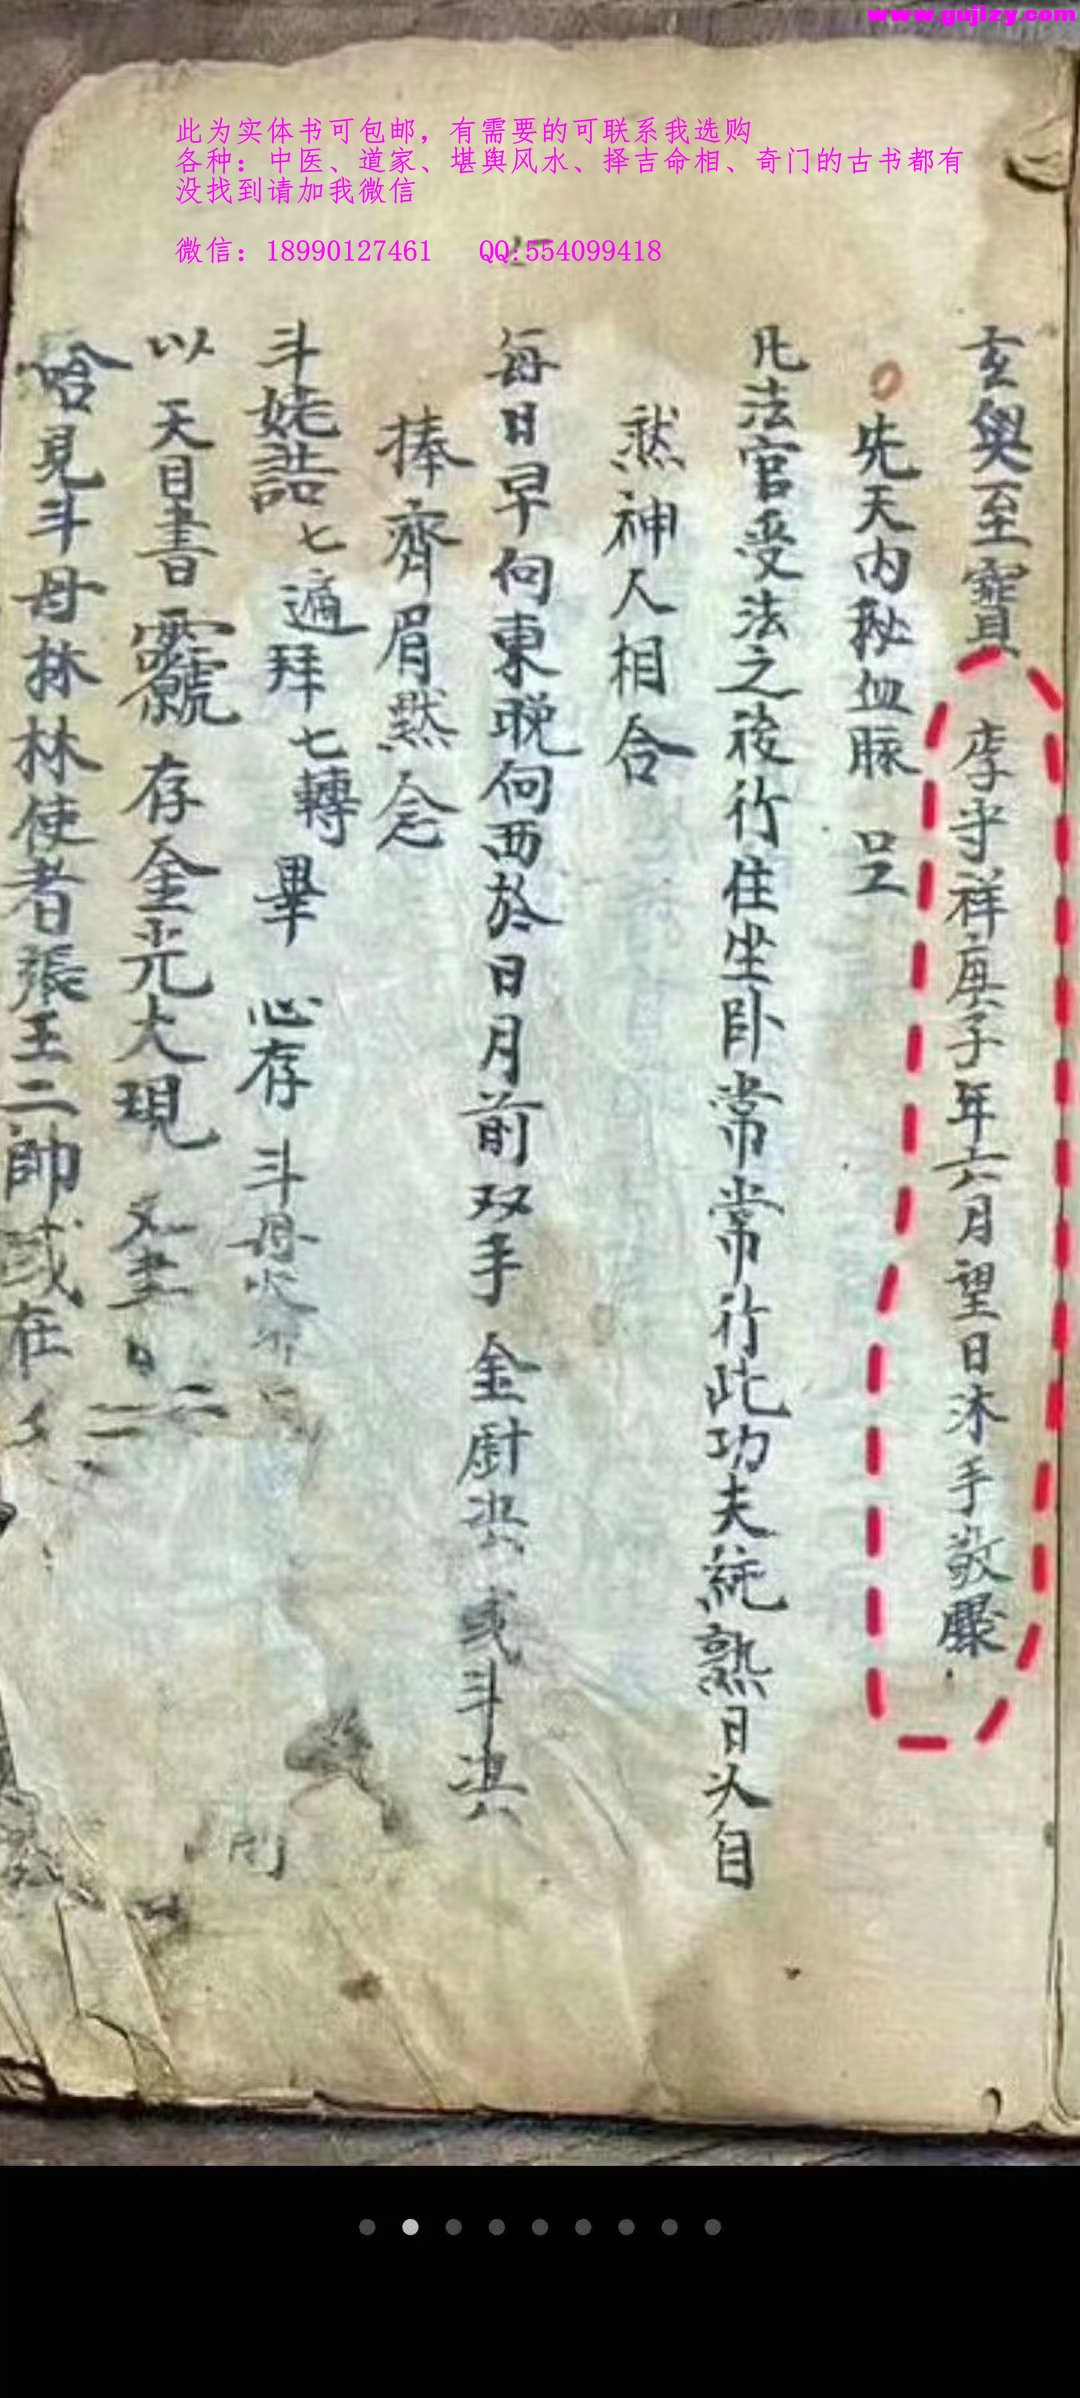 www.gujizy.com
此为实体书可包邮，有需要的可联系我选购
各种：中医、道家、堪舆风水、择吉命相、奇门的古书都有
没找到请加我微信
微信：18990127461 QQ:554099418
玄奥至寶 李守祥庚子年六月望日沐手敬騰
先天内秘血脉
凡法官受法之後行住坐卧常常行此功夫純熟日久自
然神人相合
每日早向東晚向西於日月前双手金厨 或斗
捧齊眉默念
斗姥誥七遍拜七轉畢 心存斗母
以天目書 存金光大現
哈見斗母林林使者張王二帥或在